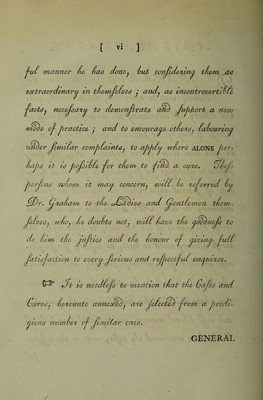 [ vi ]
ful manner he has done, but considering them as
extraordinary in themselves ; and, as incontrovertible
facts, necessary to demonstrate and support a new
mode of practice ; and to encourage others, labouring
under similar complaints, to apply where ALONE per-
haps it is possible for them to find a cure. Those
persons whom it may concern, will be referred by
Dr. Graham to the Ladies and Gentlemen them-
selves, who, he doubts not, will have the goodness to
do him the justice and the honour of giving full
satisfaction to every serious and respectful enquirer.
☞ It is needless to mention that the Cases and
Cures, hereunto annexed, are selected from a prodi-
gious number of similar ones.
GENERAL